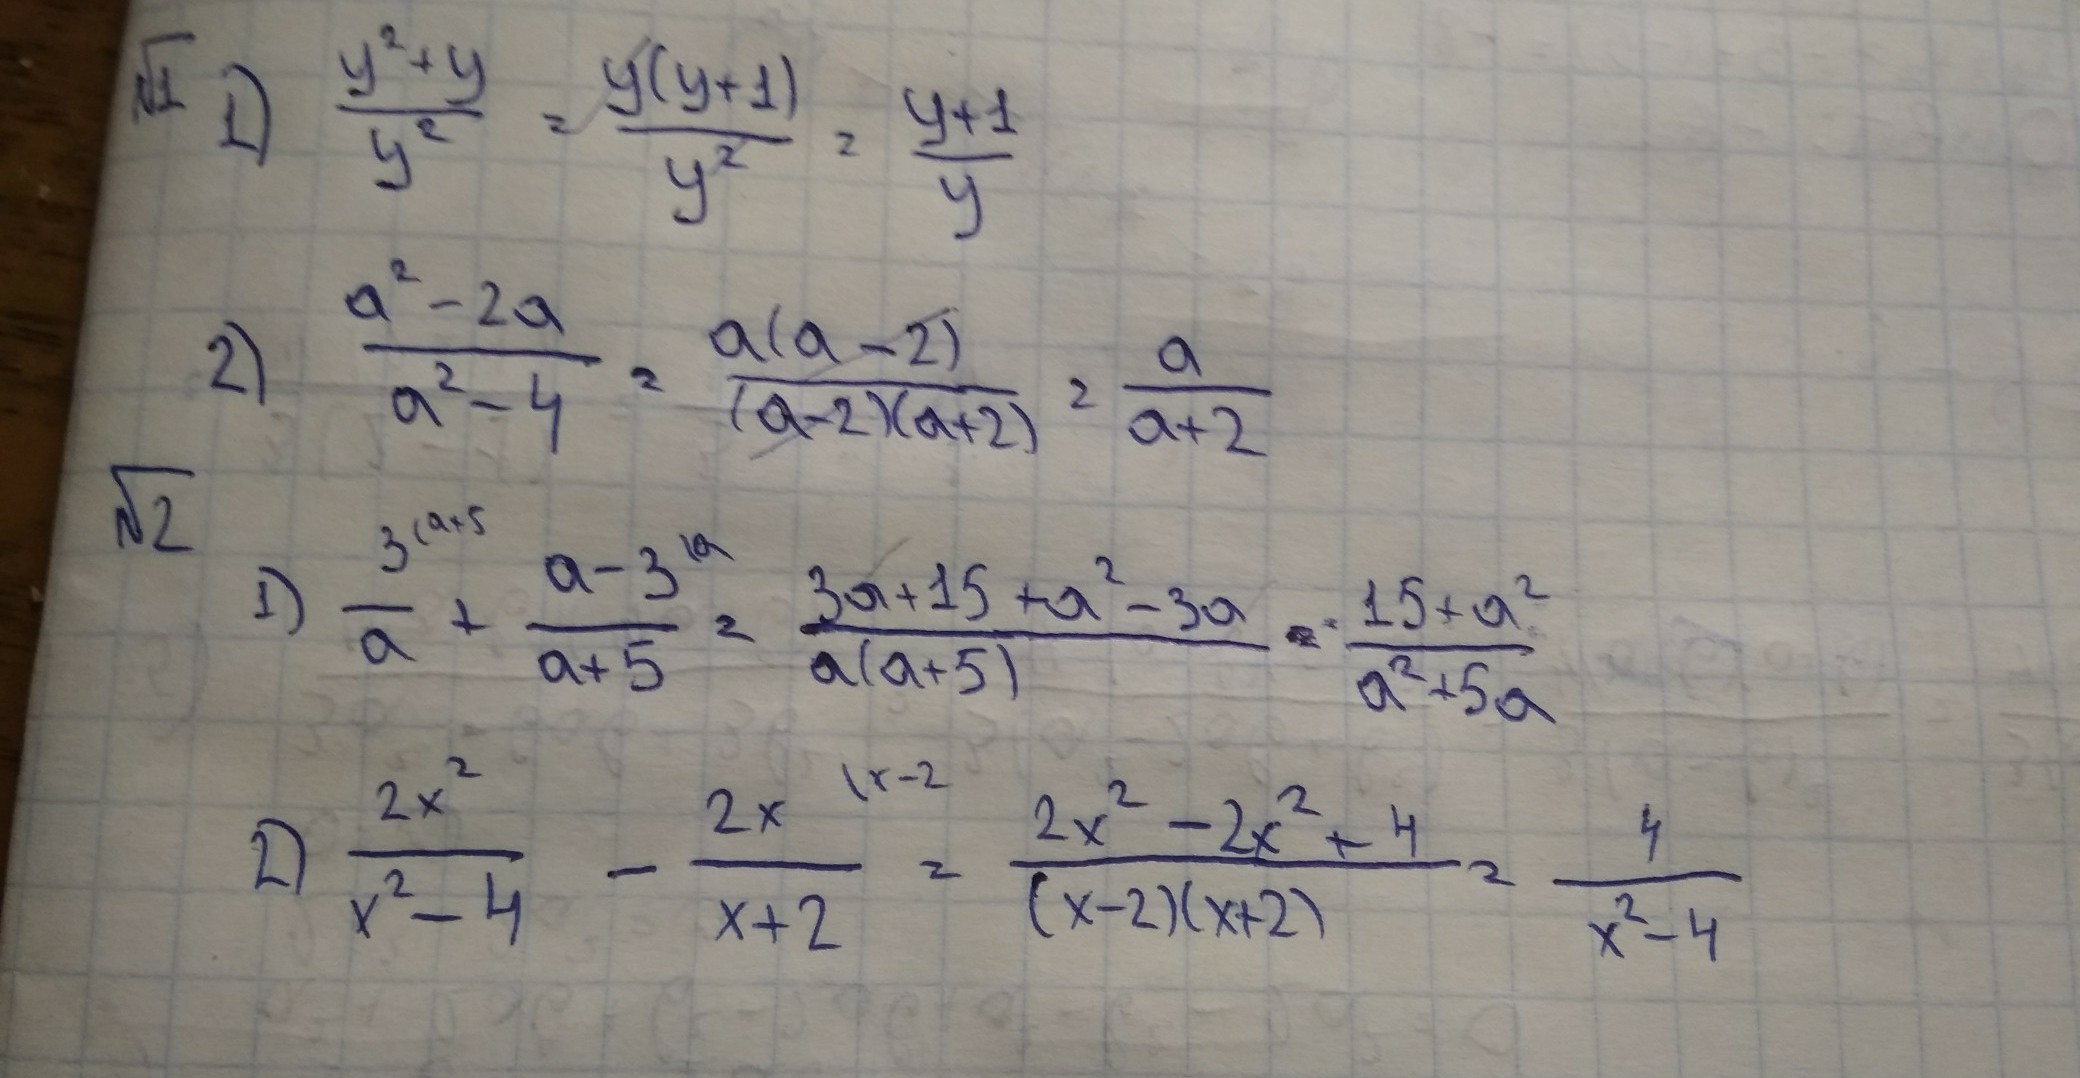 √1 1) (y²+y)/y² = y(y+1)/y² = (y+1)/y
2) (a²-2a)/(a²-4) = a(a-2)/((a-2)(a+2)) = a/(a+2)
√2
1) 3^(a+5/a + a-3^\a/(a+5) = (3a+15+a²-3a)/(a(a+5)) = (15+a²)/(a²+5a)
2) 2x²/(x²-4) - 2x^\x-2/(x+2) = (2x²-2x²+4)/((x-2)(x+2)) = 4/(x²-4)